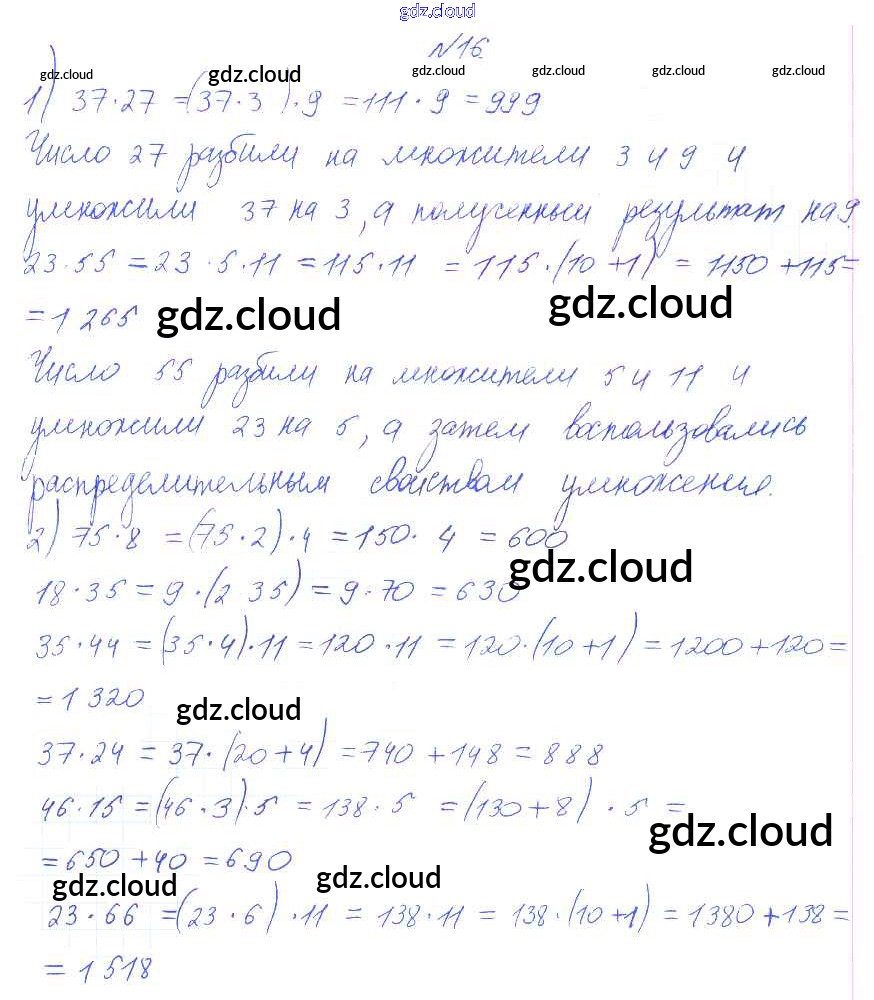 gdz.cloud
№16
gdz.cloud gdz.cloud gdz.cloud gdz.cloud gdz.cloud gdz.cloud
1) 37·27 =(37·3)·9 =111·9=999
Число 27 разбили на множители 3 и 9 и
умножили 37 на 3, а полученный результат на 9.
23·55 = 23·5·11 = 115·11 = 115·(10+1) = 1150+115=
= 1 265 gdz.cloud gdz.cloud
Число 55 разбили на множители 5 и 11 и
умножили 23 на 5, а затем воспользовались
распределительным свойством умножения.
2) 75·8 = (75·2)·4 = 150·4 = 600
gdz.cloud
18·35 = 9·(2 35) = 9·70 = 630
35·44 = (35·4)·11 = 120·11 = 120·(10+1) = 1200+120=
= 1 320
gdz.cloud
37·24 = 37·(20+4) = 740+148 = 888
46·15 = (46·3)·5 = 138·5 = (130+8)·5 =
gdz.cloud
= 650+40 = 690
gdz.cloud gdz.cloud
23·66 =(23·6)·11 = 138·11 = 138·(10+1) = 1380+138=
= 1 518